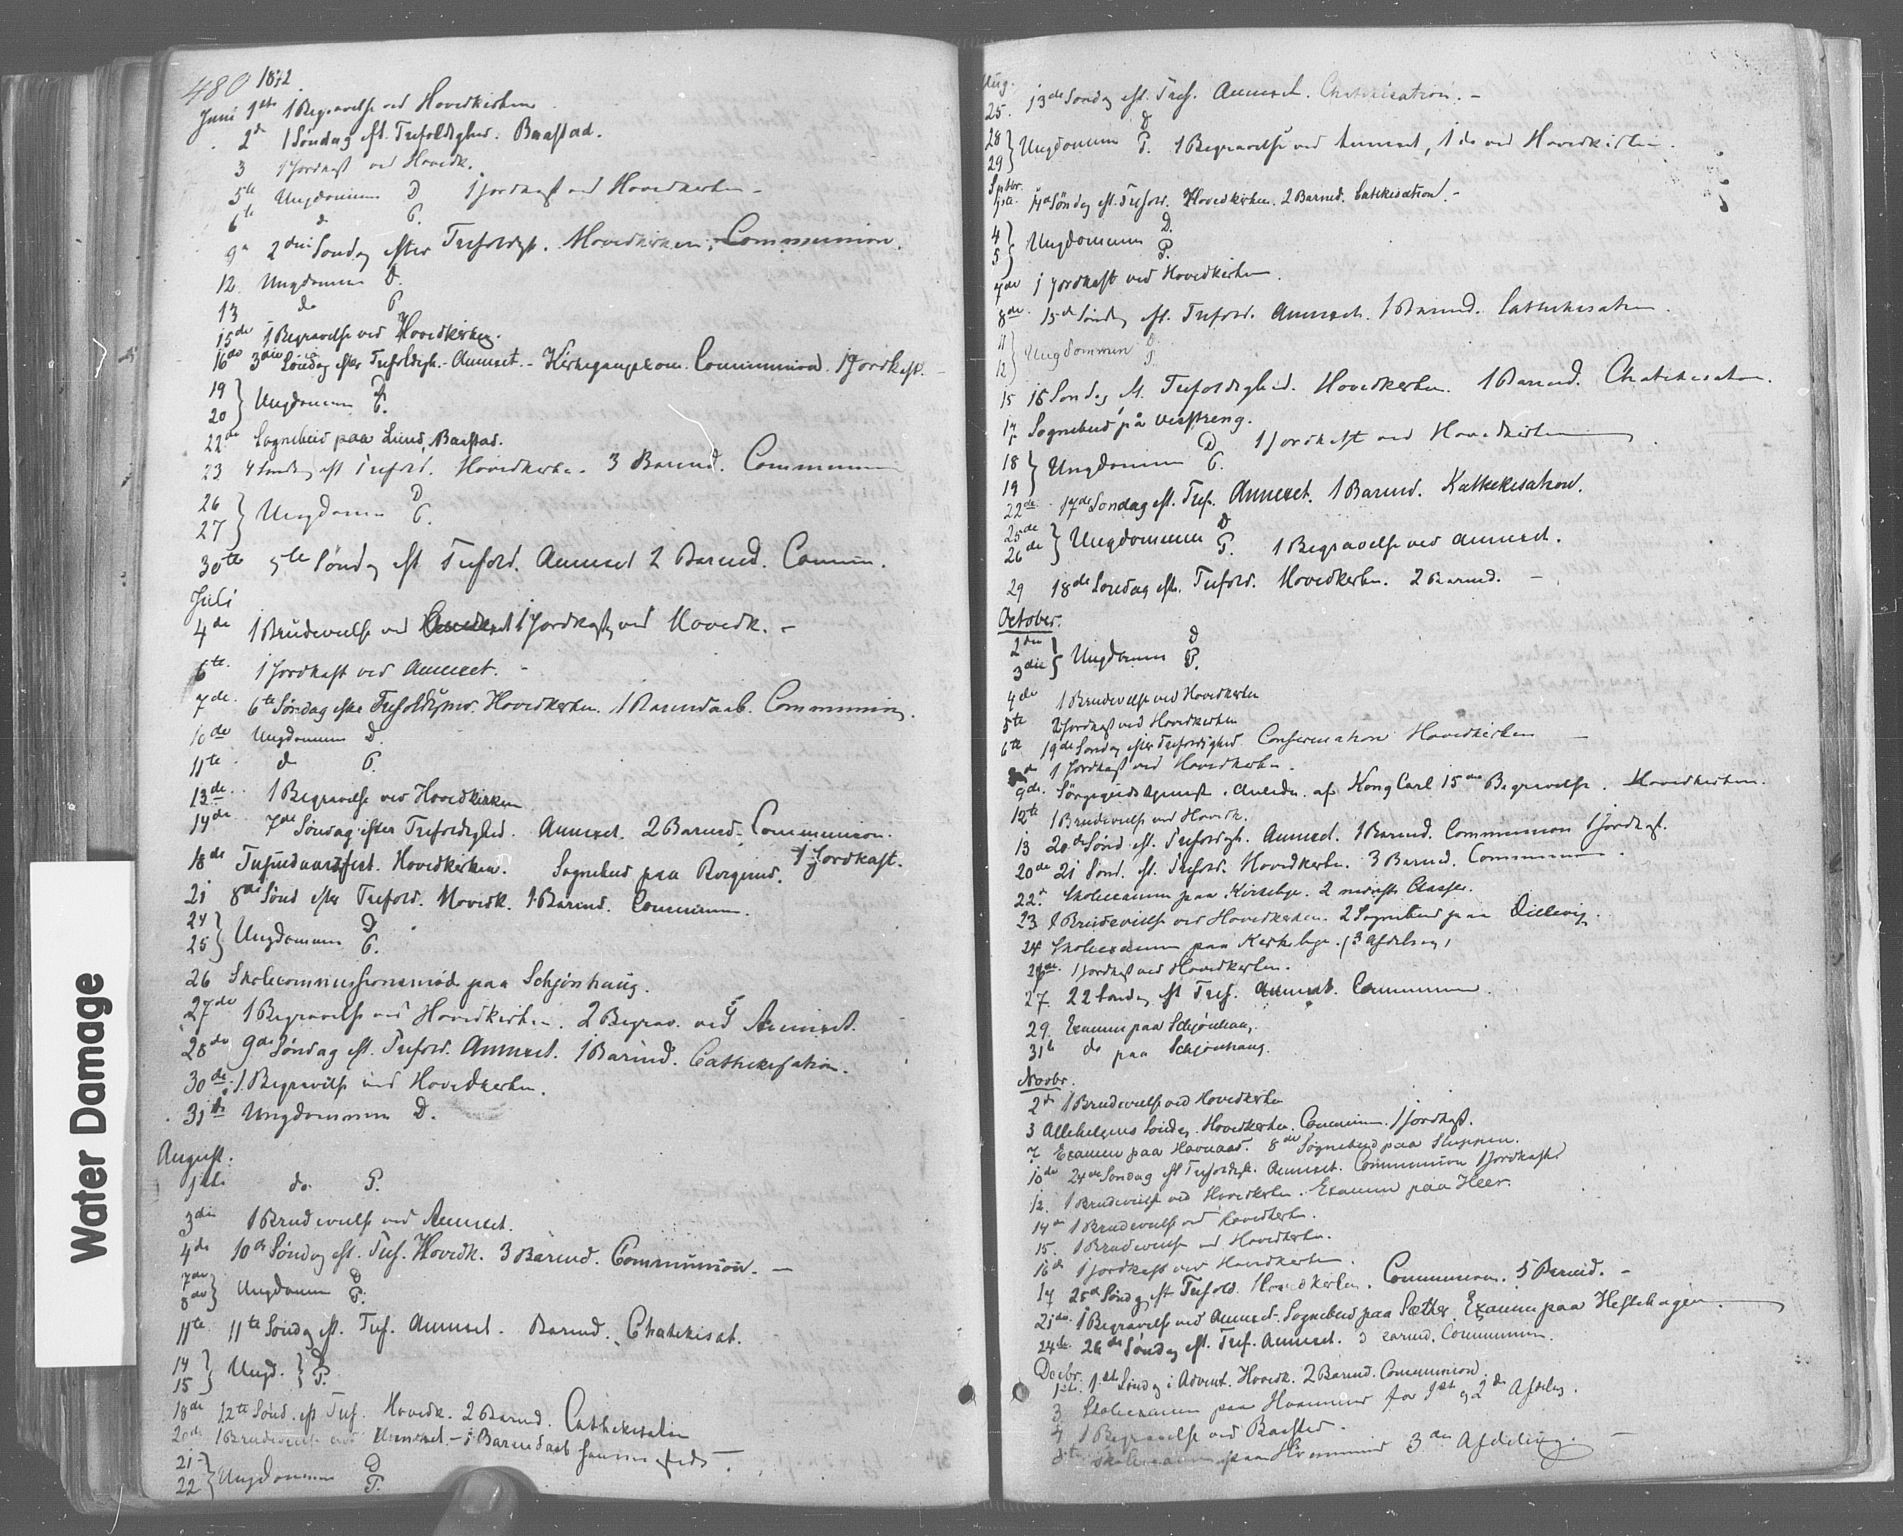 480 1872.
Juni 1ste 1 Begravelse ved Hovedkirken
2de 1 Søndag eft. Trefoldighed. Baastad.
3 1 Jordkast ved Hovedk.
5te Ungdommen D 1 Jordkast ved Hovedkirken -
6te d P.
9de 2den Søndag efter Trefoldigh. Hovedkirken. Communion.
12 Ungdommen D.
13 do P.
15de 1 Begravelse ved Hovedkirken.
16de 3die Søndag efter Trefoldigh. - Annexet. - Communion. 1 Jordkast. -
19 } Ungdommen D
20 } P.
22de Sognebud paa Lund, Baastad.
23 4 Søndag eft Trefold. Hovedkirken. 3 Barned. Communion
26 } Ungdommen D
27 } P.
30te 5te Søndag eft Trefold. Annexet 2 Barned. Commun.
Juli
4de 1 Brudevielse ved 1 Jordkast ved Hovedk. -
6te 1 Jordkast ved Annexet. -
7de 6te Søndag efter Hovedkirken. 1 Barnedaab. Communion.
10de Ungdommen D.
11te do P.
13de 1 Begravelse ved Hovedkirken
14de 7de Søndag efter Trefoldighed. Annexet. 2 Barned. Communion.
1 Jordkast.
18de Tusindaarsfest. Hovedkirken. Sognebud paa
21 8de Sønd efter Trefold. Hovedk. 1 Barned. Communion.
24 } Ungdommen D
25 } P.
26 Skolecommissionsmøde paa Schjønhaug.
27de 1 Begravelse ved Hovedkirken. 2 Begrav. ved Annexet.
28de 9de Søndag eft. Trefold. Annexet. 1 Barned. Cathekisation.
30de 1 Begravelse ved Hovedkirken.
31te Ungdommen D.
August.
1ste do P.
3die 1 Brudevielse ved Annexet.
4de 10de Søndag eft. Tref. Hovedk. 3 Barned. Communion. -
7de } Ungdommen D
8de } P.
11te 11te Søndag eft. Tref. Annexet. Barned. Chatekisat.
14 } Ungd. } D
15 } P.
18de 12te Sønd. eft Tref. Hovedk. 2 Barned. Cathekisation
20de 1 Brudevielse ved Annexet. - 1 Barnedaab
21 } Ungdommen D
22 } P.
Aug.
25. 13de Søndag eft. Tref. Annexet. Chatekisation. -
28 } Ungdommen D
29 } P. 1 Begravelse ved Annexet, 1 do ved Hovedkirken.
Septbr.
1ste 14de Søndag eft. Trefold. Hovedkirken. 2 Barned. Catekisation. -
4 } Ungdommen D.
5 } P.
7de 1 Jordkast ved Hovedkirken.
8de 15de Søndag eft. Trefold. Annexet. 1 Barned. Cattekisation.
11 } Ungdommen D.
12 } P.
15 16 Søndag eft. Trefoldighed. Hovedkirken. 1 Barned. Chatekisation.
17 Sognebud på
18 } Ungdommen D 1 Jordkast ved Hovedkirken
19 } P.
22de 17de Søndag eft. Tref. Annexet. 1 Barned. Kathekisation.
25de } Ungdommen D
26de } P. 1 Begravelse ved Annexet.
29 18de Søndag eft. Trefold. Hovedkirken. 2 Barned. -
October.
2den } Ungdommen D
3die } P.
4de 1 Brudevielse ved Hovedkirken
5te 2 Jordkast ved Hovedkirken
6te 19de Søndag efter Trefoldighed Confirmation Hovedkirken -
1 Jordkast ved Hovedkirken.
9de. Sørgegudstjeneste i Anledn. af Kong Carl 15des Begravelse. Hovedkirken.
12te 1 Brudevielse ved Hovedk.
13 20de Sønd eft. Trefoldigh. Annexet. 1 Barned. Communion 1 Jordkast.
20de 21 Sønd. eft. Trefold. Hovedkirken. 3 Barned. Communion.
22. Skoleexamen paa Kirkebye. 2 nederste Classer.
23 1 Brudevielse ved Hovedkirken. 2 Sognebud paa Dillevig.
24 Skoleexamen paa Kirkebye. (3 Afdeling)
1 Jordkast ved Hovedkirken.
27. 22 Søndag eft Tref. Annexet. Communion.
29. Examen paa Schjønhaug.
31te do paa Schjønhaug.
Novbr.
2de 1 Brudevielse ved Hovedkirken
3 Allehelgens Søndag. Hovedkirken. Communion. 1 Jordkast.
7 Examen paa Havnaas. 8de Sognebud paa
10de 24de Søndag eft Trefoldigh. Annexet. Communion 1 Jordkast
12. 1 Brudevielse ved Hovedkirken. Examen paa Heer.
14de 1 Brudevielse ved Hovedkirken.
15. 1 Brudevielse ved Hovedkirken.
16de 1 Jordkast ved Hovedkirken.
17 25de Søndag eft Trefold. Hovedkirken. Communion. 5 Barned. -
21de. 1 Begravelse ved Annexet. Sognebud paa Sæther. Examen paa Heslehagen.
24de 26de Søndag eft. Tref. Annexet. 3 Barned. Communion.
Decbr.
1ste. 1ste Søndag i Advent. Hovedk. 2 Barned. Communion.
3. Skoleexamen paa for 1ste og 2den Afdeling.
4 1 Begravelse ved Baastad.
5te Skoleexamen paa 3die Afdeling. -
Water Damage